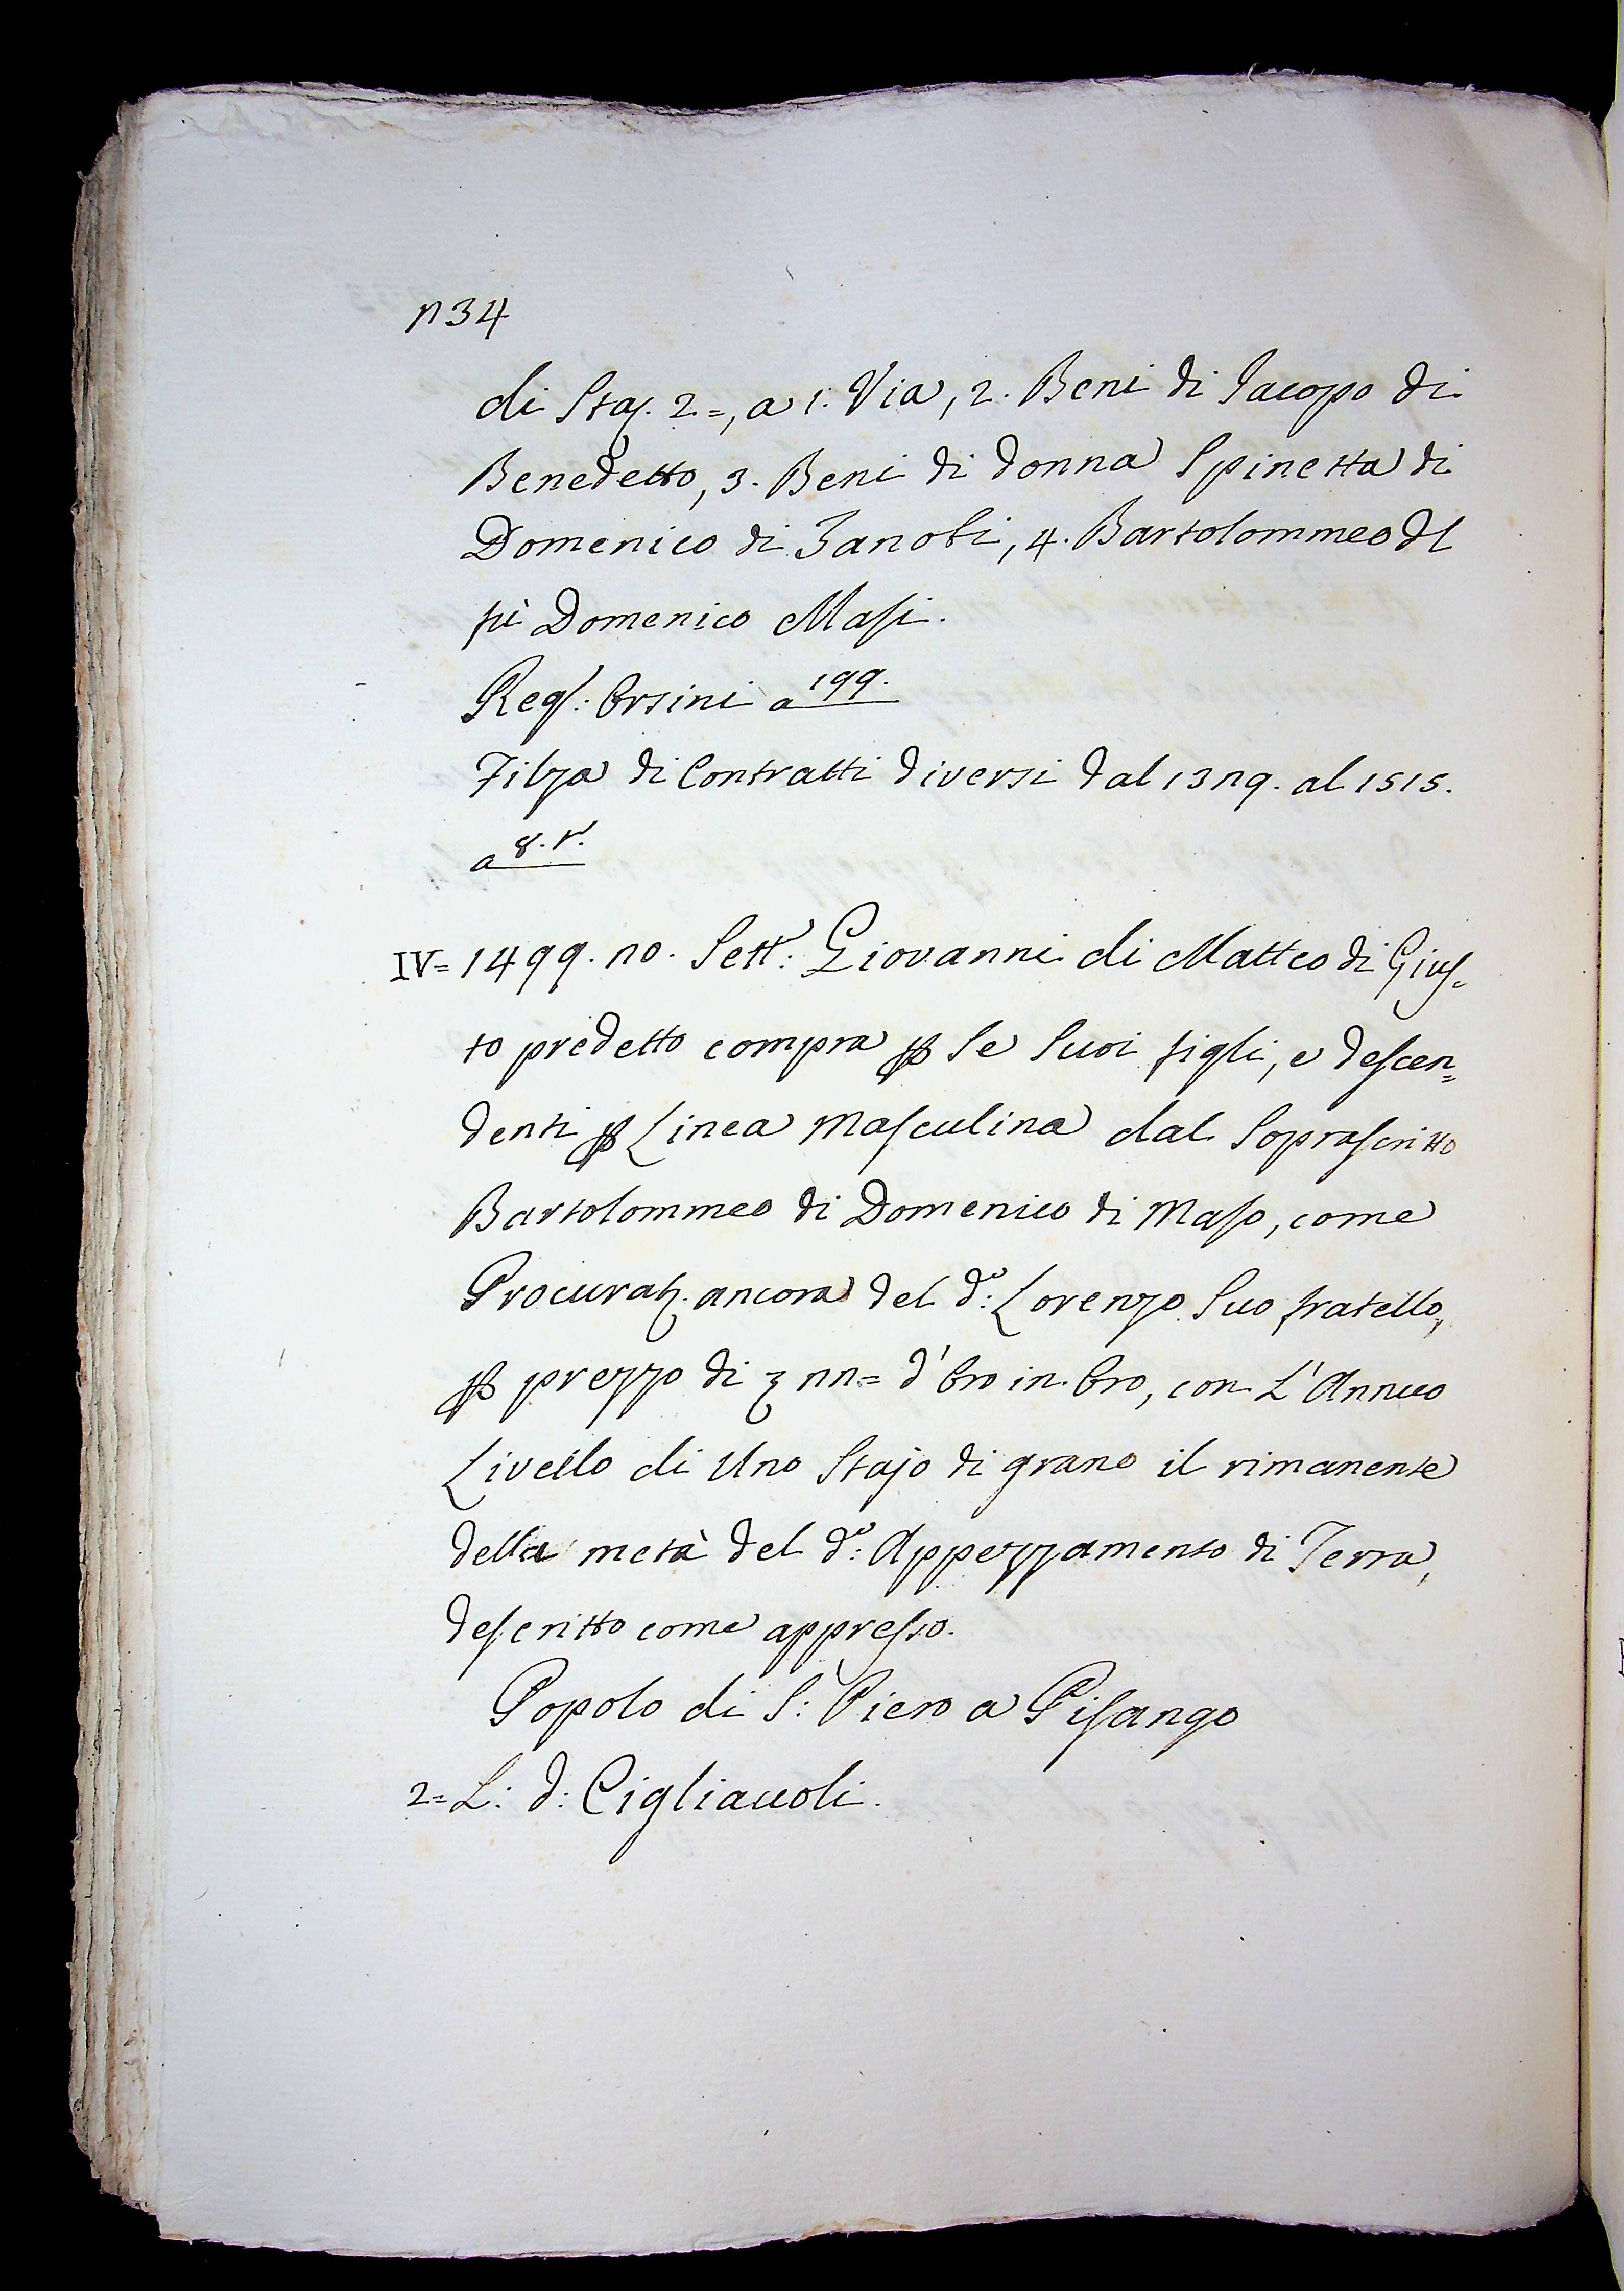 134
di Staj. 2=, a 1. Via, 2. Beni di Jacopo di
Benedetto, 3. Beni di donna Spinetta di
Domenico di Zanobi, 4. Bartolommeo dl
pñ Domenico Masi.
Regr: Orsini a 199.
Filza di Contratti diversi dal 1319. al 1515.
a 8. r.
IV= 1499. 10. Sett: Giovanni di Matteo di Gius-
to predetto compra ꝑ Se Suoi figli, e descen=
denti ꝑ Linea Masculina dal Soprascritto
Bartolommeo di Domenico di Maso, come
Procurat. ancora del do: Lorenzo Suo fratello,
ꝑ prezzo di 11= d'Oro in Oro, con L'Annuo
Livello di Uno Stajo di grano il rimanente
della metà del do: Appezzamento di Terra,
descritto come appresso.
Popolo di S: Piero a Pisango
2= L: d: Cigliauoli.